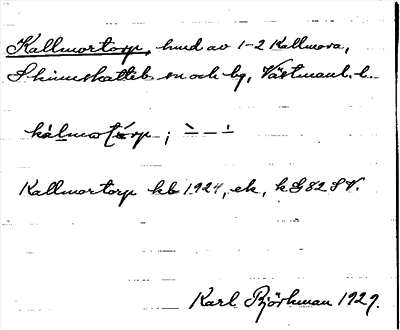 Kallmortorp, hmd av 1-2 Kallmora,
Skinnskatteb. sn och bg, Västmanl. l.
kálmo(r)tórp ; ` – –́
Kallmortorp kb 1924, ek, kG82 SV.
Karl Björkman 1929.